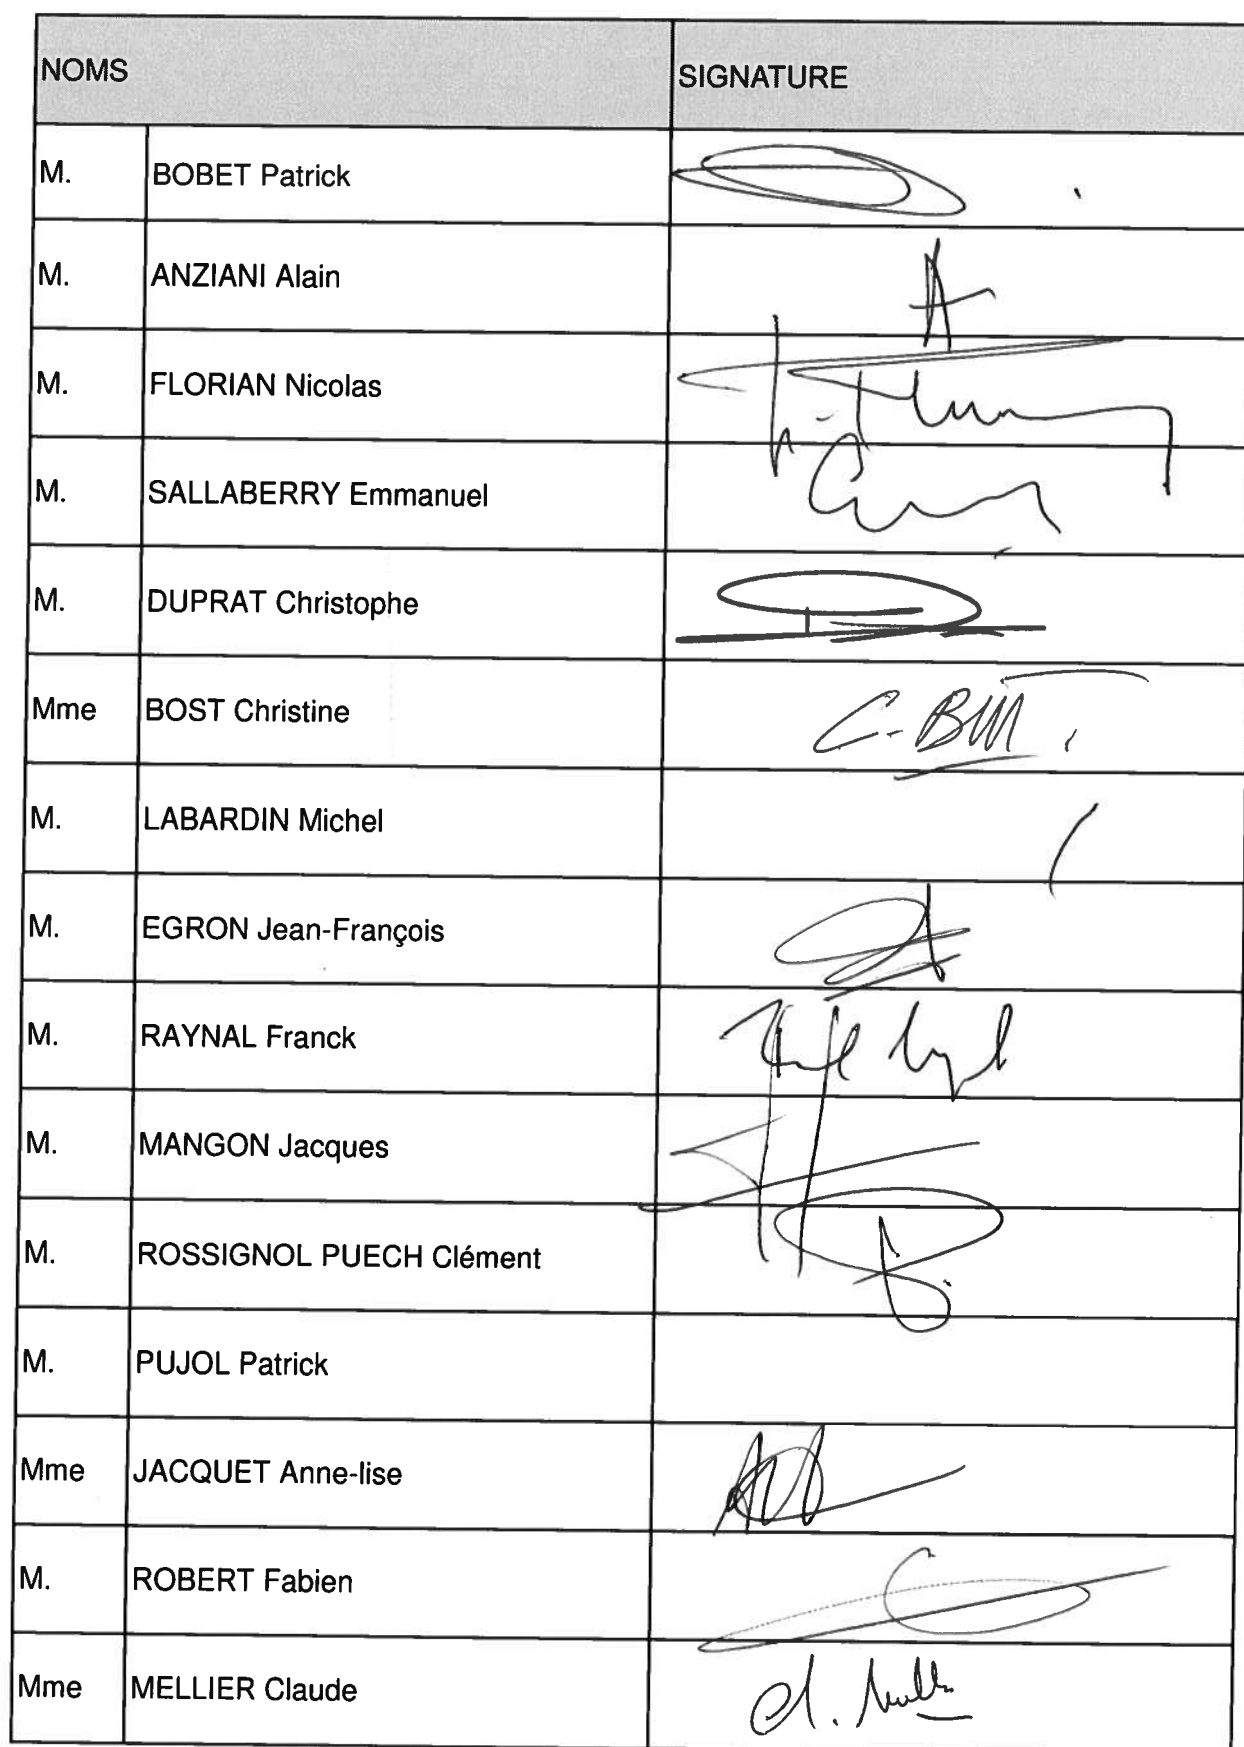 NOMS SIGNATURE
M. BOBET Patrick
M. ANZIANI Alain
M. FLORIAN Nicolas
M. SALLABERRY Emmanuel
M. DUPRAT Christophe
Mme BOST Christine
M. LABARDIN Michel
M. EGRON Jean-François
M. RAYNAL Franck
M. MANGON Jacques
M. ROSSIGNOL PUECH Clément
M. PUJOL Patrick
Mme JACQUET Anne-lise
M. ROBERT Fabien
Mme MELLIER Claude